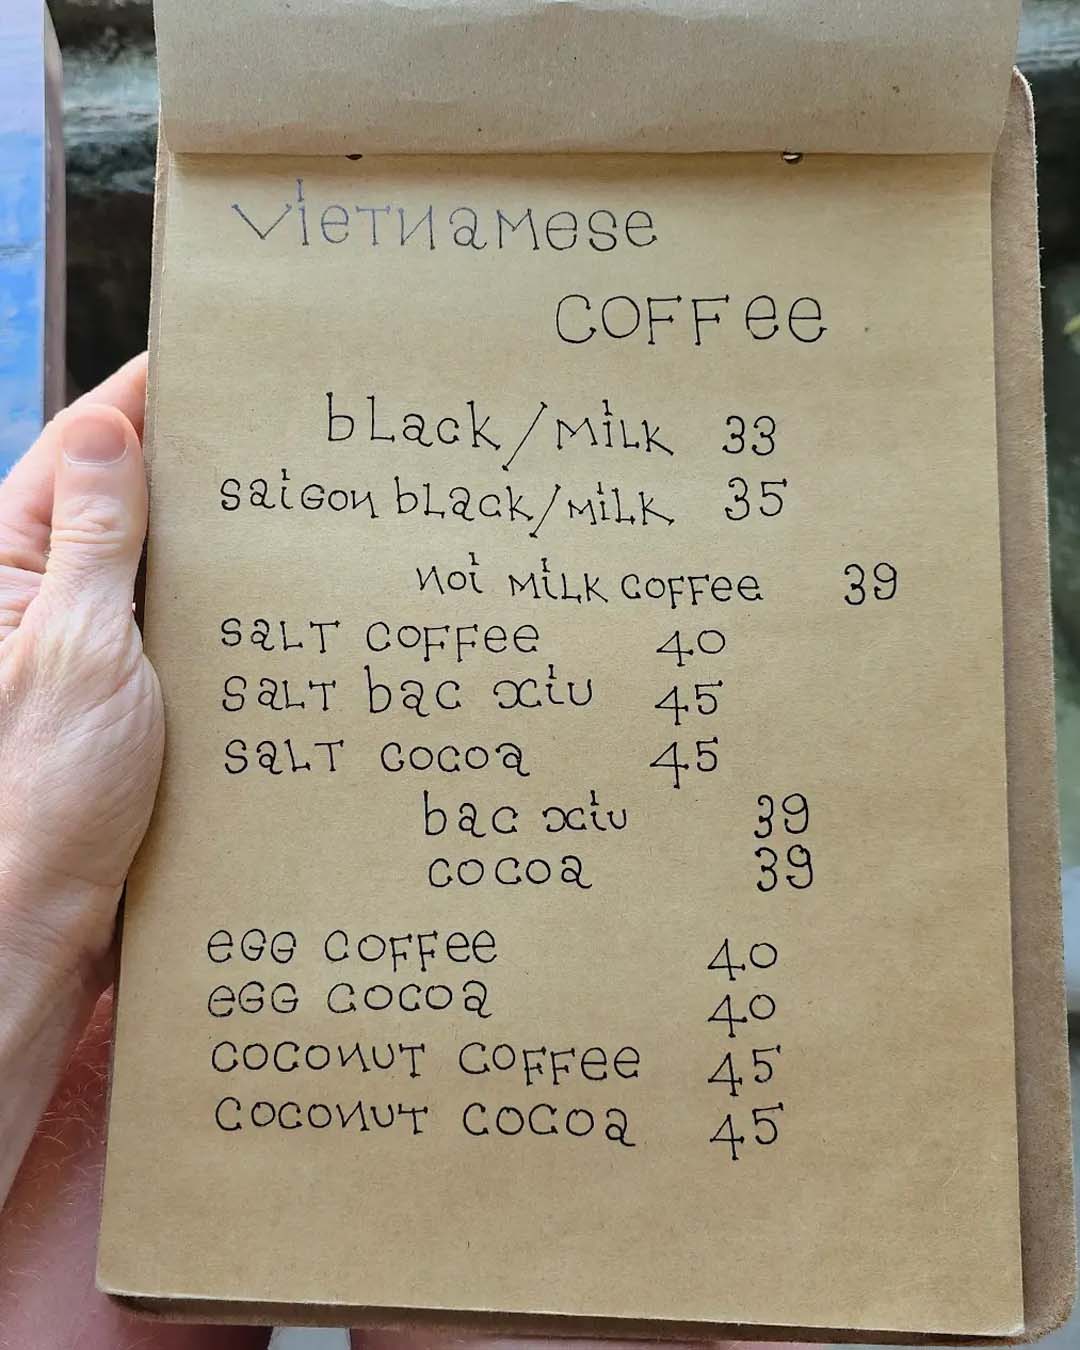 Vietnamese
COFFee
black/Milk 33
saigon black/Milk 35
noi Milk coffee 39
salt coffee 40
salt bac xiu 45
salt cocoa 45
bac xiu 39
cocoa 39
egg coffee 40
egg cocoa 40
coconut coffee 45
coconut cocoa 45